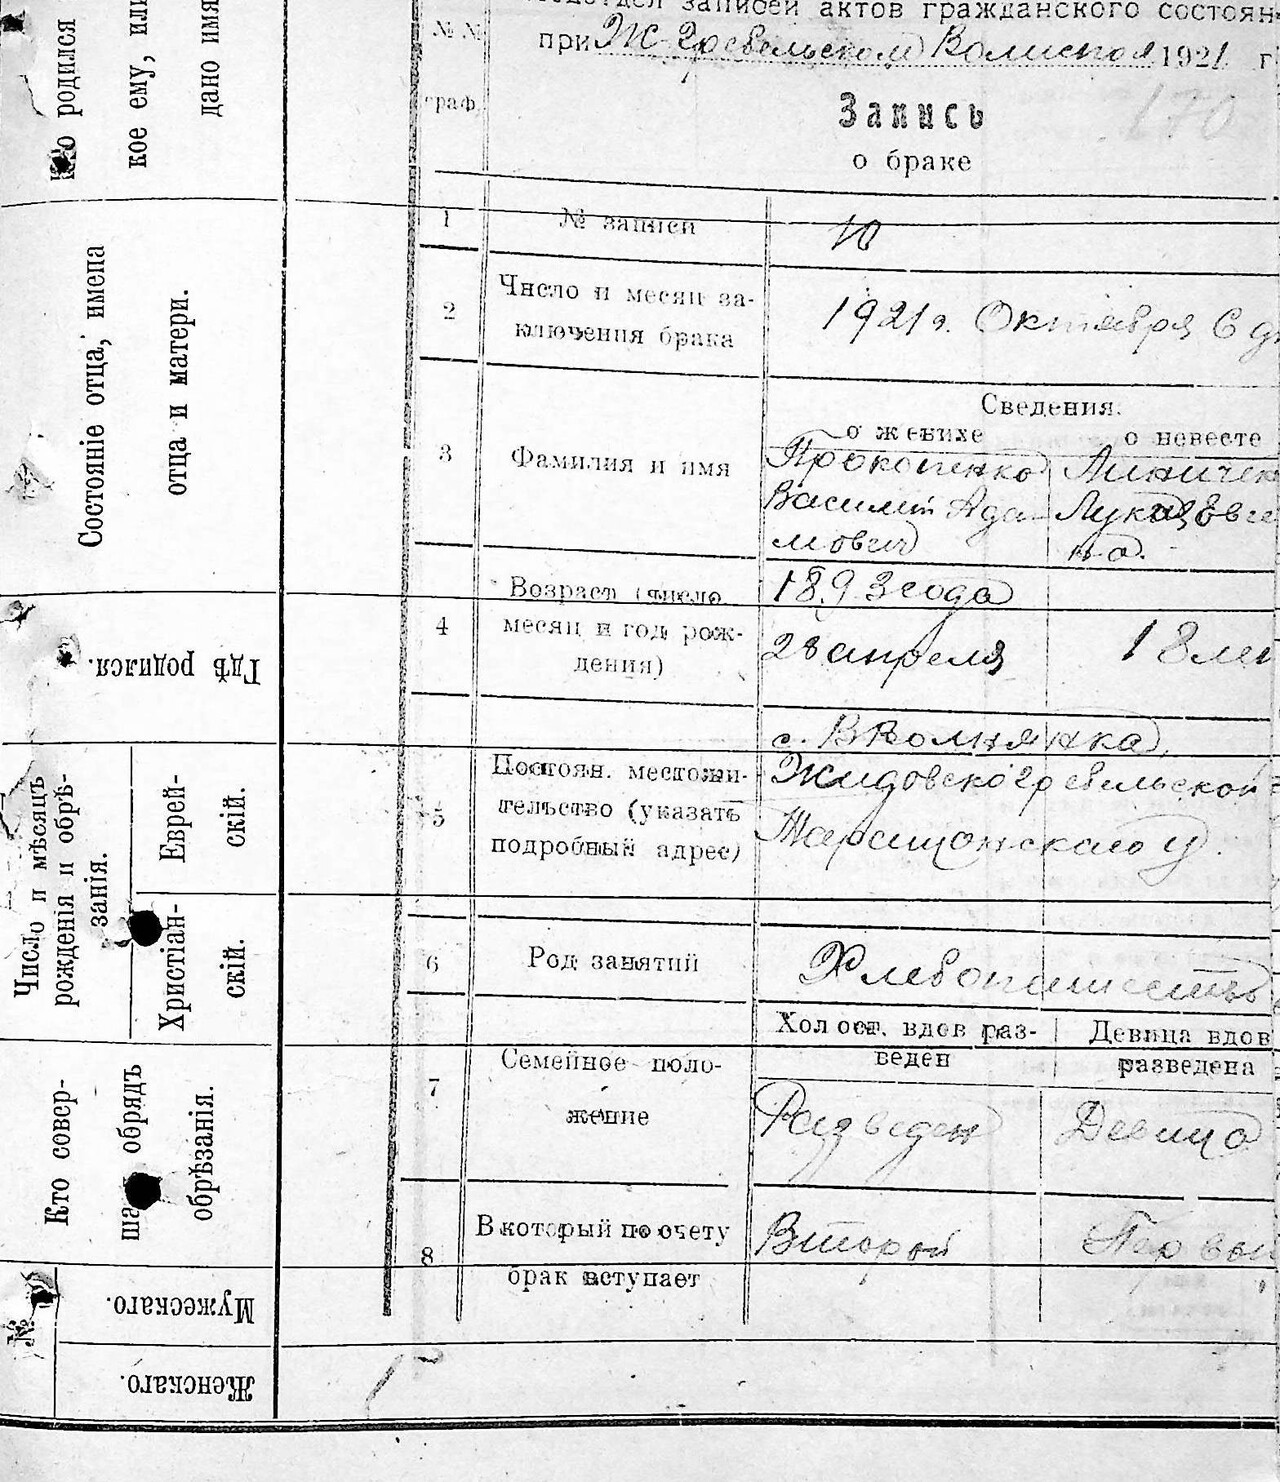 родился
кое ему, или
дано имя
Состояніе отца, имена
отца и матери.
Гдѣ родился.
Число и мѣсяцъ
рожденія и обрѣ-
занія.
Еврей-
скій.
Христіан-
скій.
Кто совер-
обрядъ
обрѣзанія.
№
Мужескаго.
Женскаго.
записей актов гражданского состоян
№№
граф.
при Ж-Гребельском 1921 г
170
Запись
о браке
1 № записи 10
2 Число и месяц за-
ключения брака
1921 г. Октября 6 дн
Сведения:
о женихе о невесте
3 Фамилия и имя
Прокопенко
Василий Ада-
мович
Линичен
на.
4 Возраст (число
месяц и год рож-
дения)
1893 года
28 апреля
18 лет
5 Постоян. местожи-
тельство (указать
подробный адрес)
с.
Жидовскогребельской
Таращанского у.
6 Род занятий Хлебопашество
7 Семейное поло-
жение
Холост. вдов раз-
веден
Девица вдов
разведена
Разведен Девица
8 В который по счету
брак вступает
Второй Первый